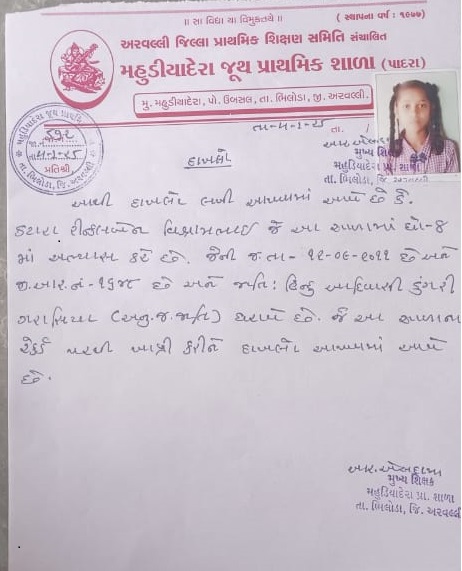 ॥ સા વિદ્યા યા વિમુક્તયે ॥
( સ્થાપના વર્ષ : ૧૯૭૭)
અરવલ્લી જિલ્લા પ્રાથમિક શિક્ષણ સમિતિ સંચાલિત
મહુડીયાદેરા જૂથ પ્રાથમિક શાળા (પાદરા)
મુ. મહુડીયાદેરા, પો. ઉબસલ, તા. ભિલોડા, જી. અરવલ્લી.
તા-૫-૧-૨૫
તા.
મુખ્ય શિક્ષક
મહુડિયાદેરા પ્રા. શાળા
તા. ભિલોડા, જિ. અરવલ્લી
તા. ભિલોડા, જિ. અરવલ્લી
પ્રતિશ્રી
દાખલો
આથી દાખલો લખી આપવામાં આવે છે કે.
કટારા રીન્કલબેન વિશ્રામભાઈ જે આ શાળામાં ધો-૪
માં અભ્યાસ કરે છે. જેની જ.તા- ૧૨-૦૬-૨૦૧૧ છે અને
જી.આર.નં-૧૬૪૮ છે અને જાતિ: હિન્દુ આદિવાસી ડુંગરી
ગરાસિયા (અનુ.જ.જાતિ) ધરાવે છે. જે આ શાળાના
રેકર્ડ પરથી ખાત્રી કરીને દાખલો આપવામાં આવે
છે.
મુખ્ય શિક્ષક
મહુડિયાદેરા પ્રા. શાળા
તા. ભિલોડા, જિ. અરવલ્લી